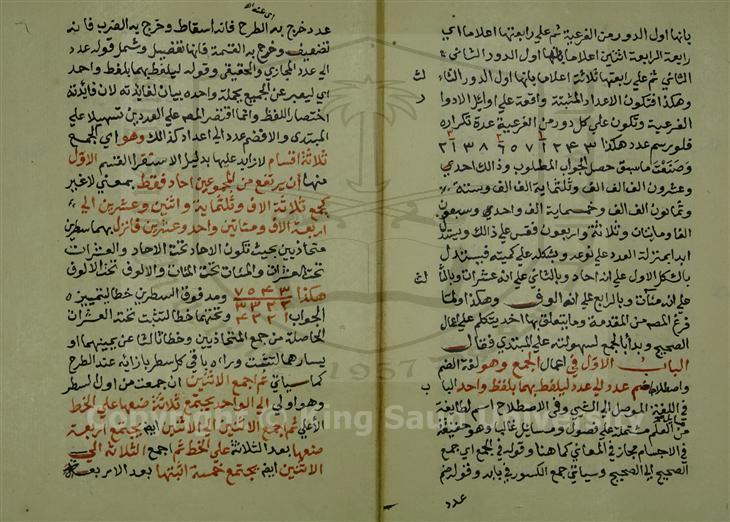 بانها اول الدور من الفرعية ثم على رابعتها اعلاما اي
رابعة الرابعة اثنين اعلاما بانها اول الدور الثاني
الثاني ثم على رابعتها ثلاثة اعلاما بانها اول الدور الثالث
وهكذا فتكون الاعداد المثبتة واقعة على اوايل الادوار
الفرعية وتكون على كل دور من الفرعية عدة تكراره
فلو رسم عدد هكذا
وصنعت ما سبق حصل الجواب المطلوب وذالك احدي
وعشرون الف الف الف وثلثماية الف الف وستة
وثمانون الف الف وخمسماية الف واحدي وسبعون
الفا ومايتان وثلاثة واربعون فقس على ذالك ويستدل
ابدا بمنزلة العدد على نوعه وبشكله على كميته فيستدل
بالشكل الاول على انه احاد وبالثاني على انه عشرات وبالثالث
على انه مئات وبالرابع على انه الوف وهكذا ولما
فرغ المص من المقدمة وما يتعلق بها اخذ يتكلم على اعمال
الصحيح وبدأ بالجمع لسهولته على المبتدي فقال
الباب الاول في اعمال الجمع وهو لغة الضم
واصطلاحا ضم عدد الي عدد ليلفظ بهما بلفظ واحد الباب
في اللغة الموصل الي الشي وفي الاصطلاح اسم لطايفة
من العلم مشتملة على فصول ومسايل غالبا وهو حقيقة
في الاجسام مجاز في المعاني كما هنا وقوله في الجمع اي جمع
الصحيح الي الصحيح وسياتي جمع الكسور في بابه وقوله ضم
عدد
عدد خرج به الطرح فانه اسقاط وخرج به الضرب فانه
تضعيف وخرج به القسمة فانها تفصيل وشمل قوله عدد
الي عدد المجازي والحقيقي وقوله ليلفظ بهما بلفظ واحد
اي ليعبر عن الجميع بجملة واحده بيان لفايدته لان فايدته
اختصار اللفظ وانما اقتصر المص على العددين تسهيلا على
المبتدي والا فضم عدد الي اعداد كذالك وهو اي الجمع
ثلاثة اقسام لا زايد عليها بدليل الاستقرا القسم الاول
منها ان يرتفع من المجموعين احاد فقط بمعني لا غير
كجمع ثلاثة الاف وثلثماية واثنين وعشرين الي
اربعة الاف ومئتين واحد وعشرين فانزل بهما سطرين
متحاذيين بحيث تكون الاحاد تحت الاحاد والعشرات
تحت العشرات والمئات تحت المئات والالوف تحت الالوف
هكذا ومد فوق السطرين خطا لتمييزه
الجواب وتحتهما خطا لتثبت تحته العشرات
الحاصلة من جمع المتحاذيين وخطا ثالثا عن يمينهما او
يسارهما لتثبت وراه باقي كل سطر بازائه عند الطرح
كما سياتي ثم اجمع الاثنين ان جمعت من اول السطر
وهو اولي الي الواحد يجتمع ثلاثة ضعها على الخط
الاعلي ثم اجمع الاثنين الي الاثنين ايضا يجتمع اربعة
ضعها بعد الثلاثة على الخط ثم اجمع الثلاثة الي
الاثنين ايضا يجتمع خمسة اثبتها بعد الاربعة
Copyright © King Saud University
1957